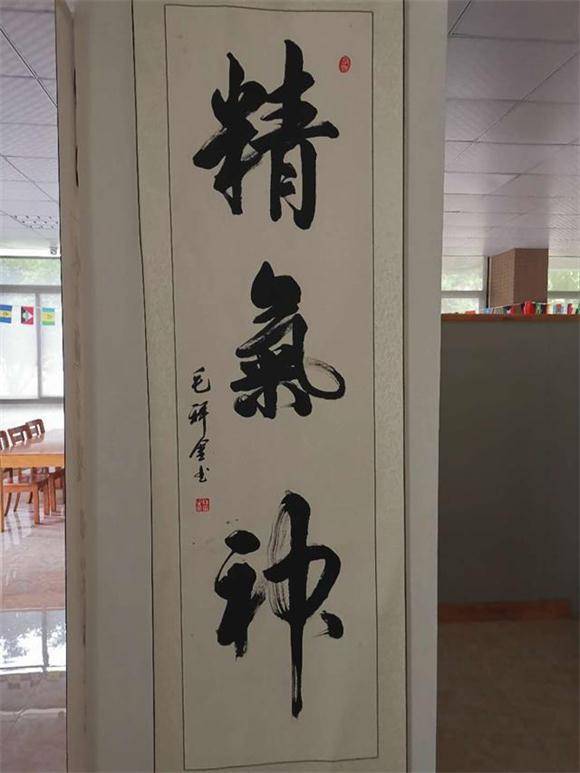 精氣神
毛祥金书